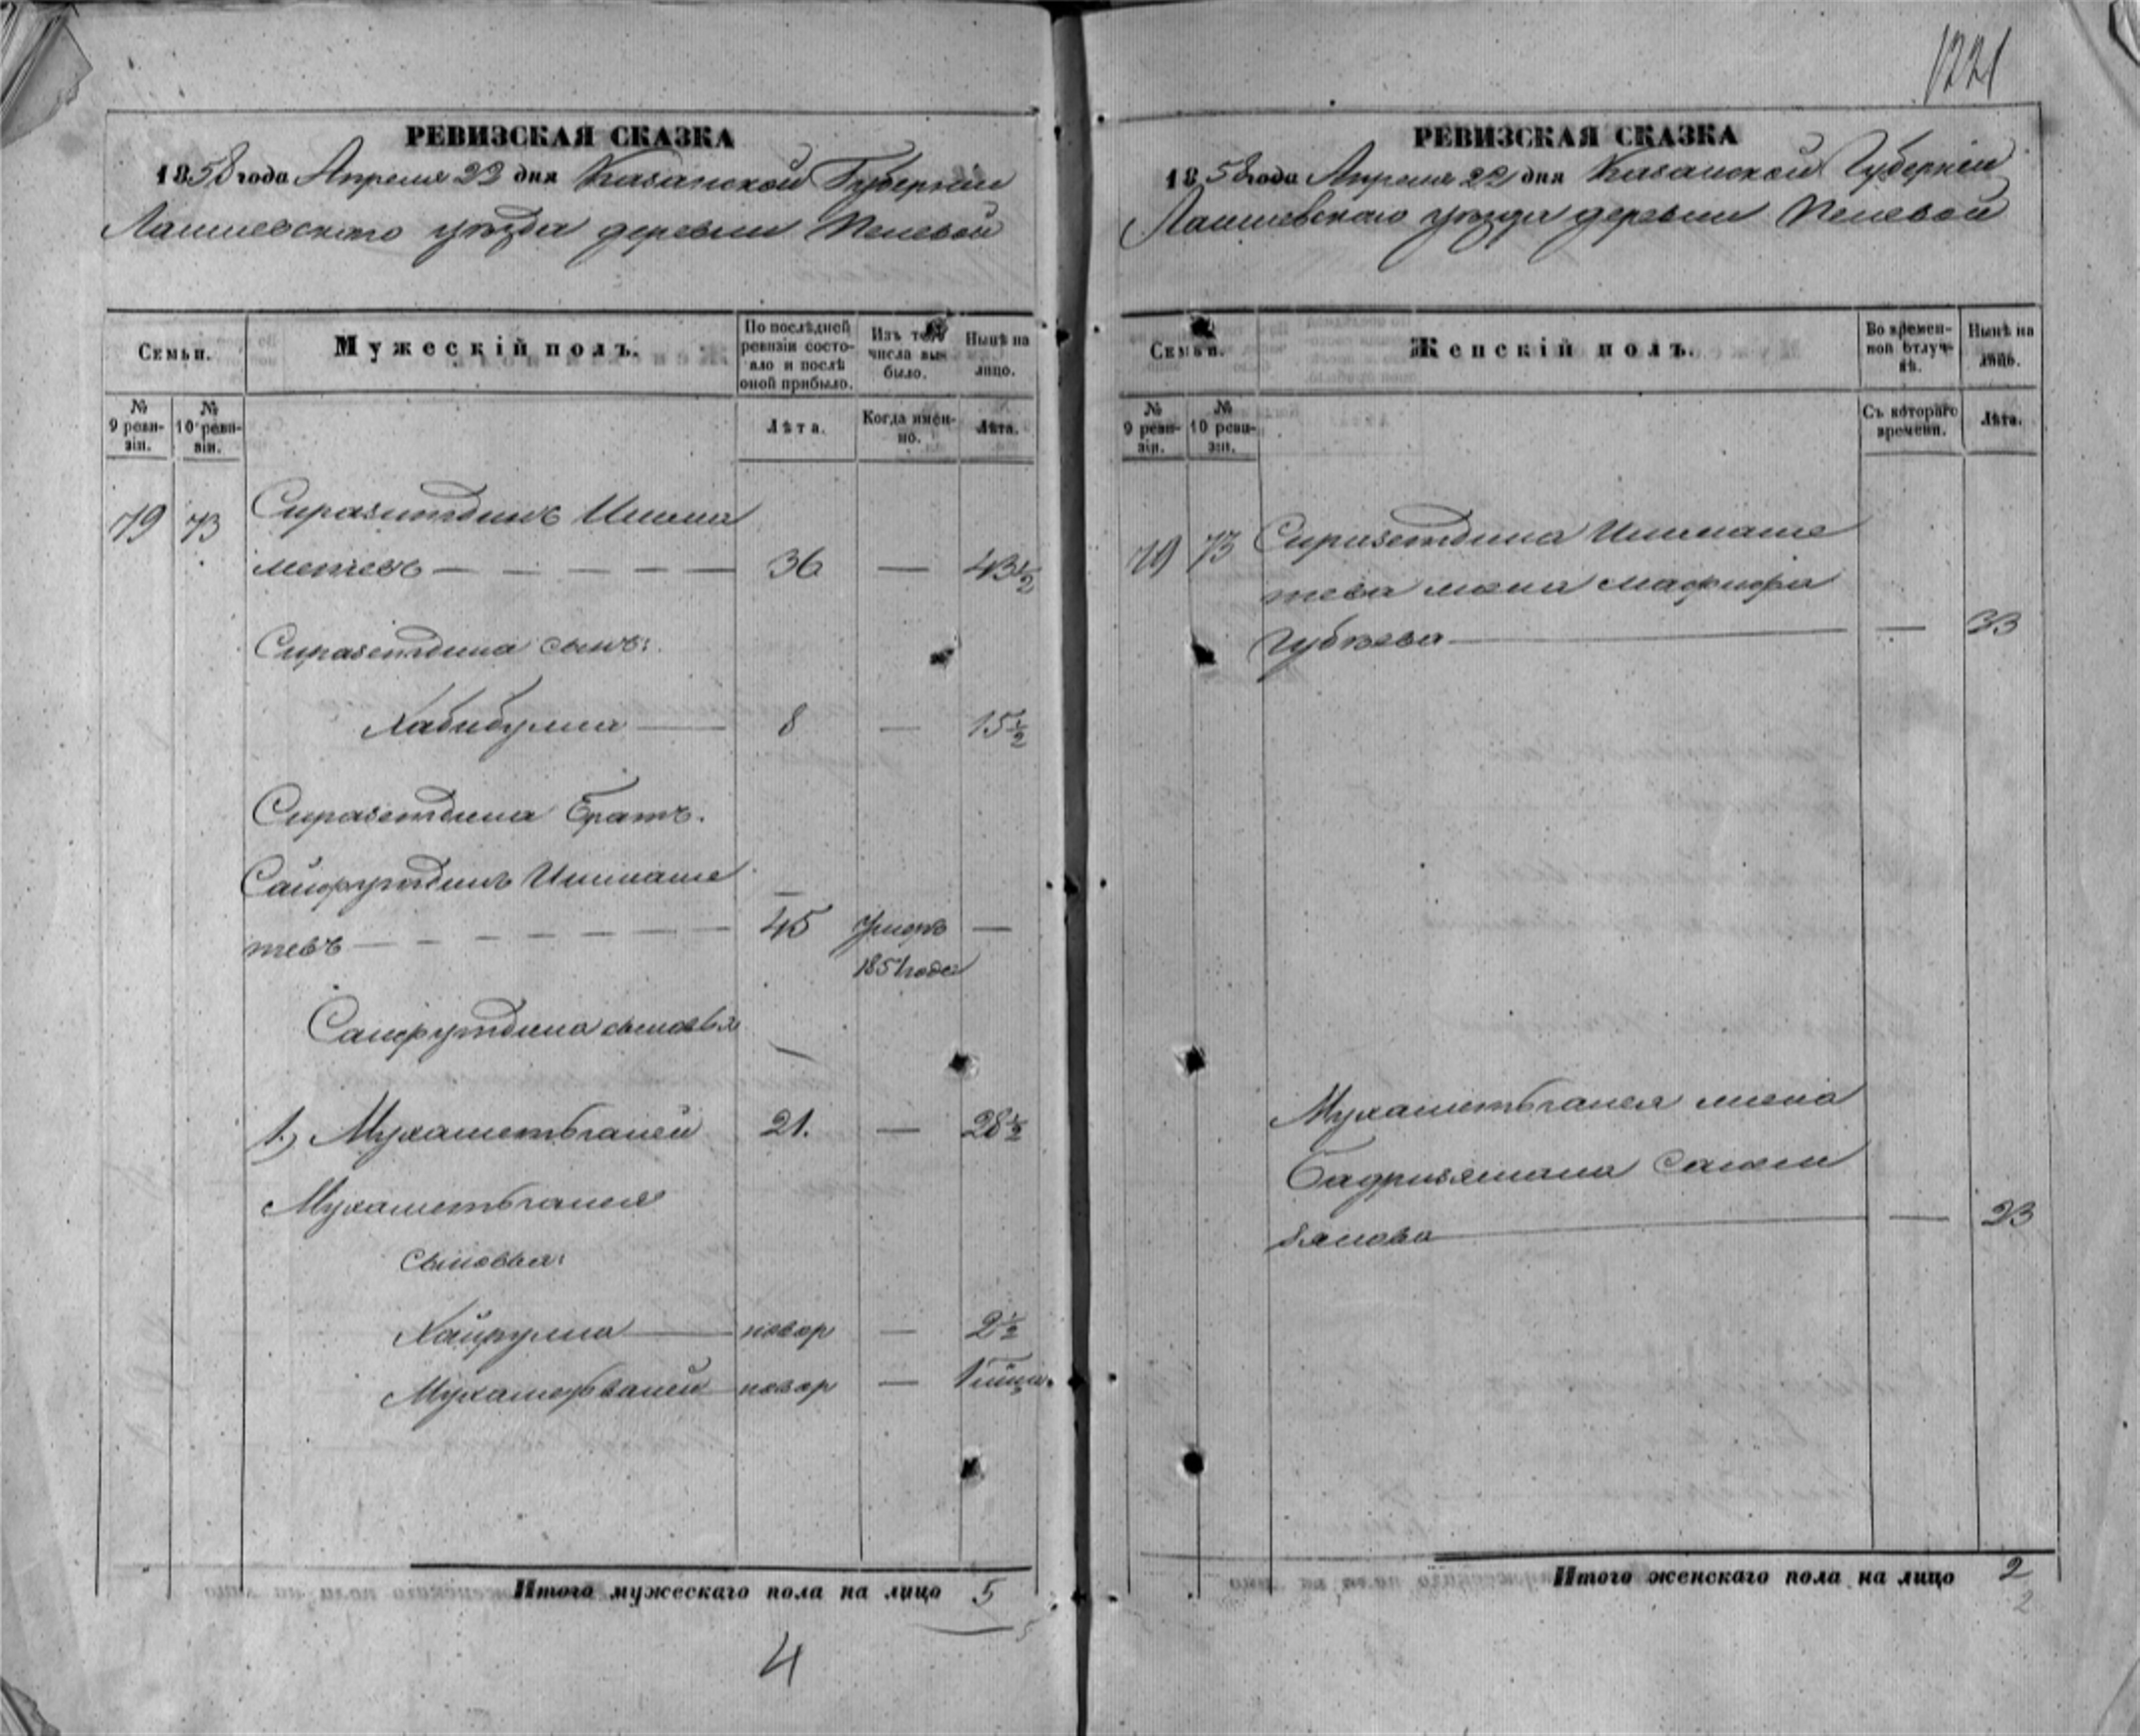 1221
РЕВИЗСКАЯ СКАЗКА
1858 года Апреля 22 дня Казанской Губернiи
Лаишевскаго уѣзда деревни
Семьи.
Мужескiй полъ.
По послѣдней ревизiи состояло и послѣ оной прибыло.
Изъ того числа выбыло.
Нынѣ на лицо.
№ 9 ревизiи.
№ 10 ревизiи.
Лѣта.
Когда именно.
Лѣта.
79 73 Сиразитдинъ Ишма
метевъ — 36 — 43 ½
Сиразетдина сынъ:
Хабибулла — 8 — 15 ½
Сиразетдина Братъ.
Сайфутдинъ Ишмаме
тевъ — 45 Умеръ —
1851 года
Сайфутдина сыновья
1, Мухаметьганей 21. — 28 ½
Мухаметьганея
сыновья:
Хайрулла — новор — 2 ½
Мухаметьвалей новор —
Итого мужескаго пола на лицо 5
5
4
РЕВИЗСКАЯ СКАЗКА
1858 года Апреля 22 дня Казанской Губернiи
Лаишевскаго уѣзда деревни
Семьи.
Женскiй полъ.
Во временной отлучкѣ.
Нынѣ на лицо.
№ 9 ревизiи.
№ 10 ревизiи.
Съ котораго времени.
Лѣта.
79 73 Сиразетдина Ишмаме
тева жена
— — 33
Мухаметьганея жена
— — 23
Итого женскаго пола на лицо 2
2